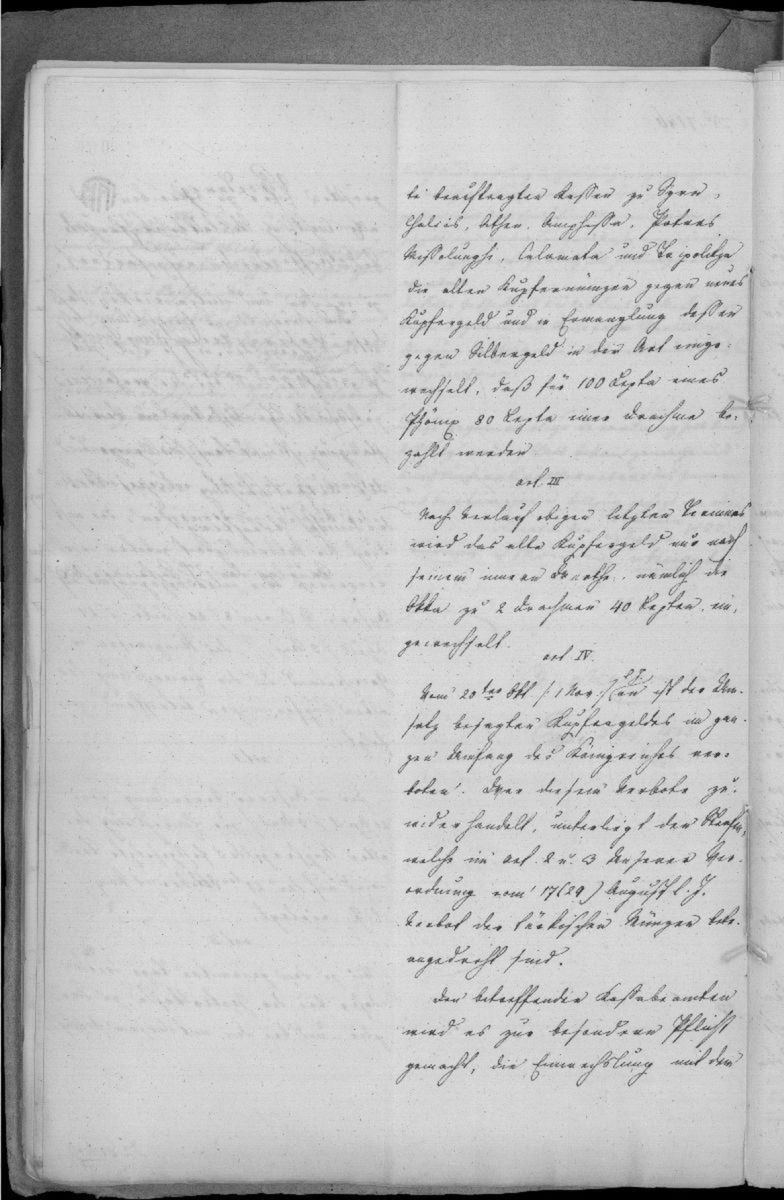 beauftragten Kassen zu Syra,
Chalcis, Athen, Amphessa, Patras
Missolunghi, Calamata und Tripolitza
die alten Kupfermünzen gegen neues
Kupfergeld und in Ermanglung dessen
gegen Silbergeld in der Art einge-
wechselt, daß für 100 Lepta eines
Phönix 80 Lepta einer Drachme be-
zahlt werden.
art. III
Nach Verlauf obigen letzten Termines
wird das alte Kupfergeld nur nach
seinem innern Werthe, nämlich die
Okka zu 2 Drachmen 40 Lepten, ein-
gewechselt.
art. IV.
Vom 20ten Okt. /: 1 Nov. :/ an ist der Um-
satz besagten Kupfergeldes im gan-
zen Umfang des Königreiches ver-
boten. Wer diesem Verbote zu-
wider handelt, unterliegt den Strafen,
welche im Art. 2 u. 3 Unserer Ver-
ordnung vom 17(29) August l. J.
Verbot der türkischen Münzen betr.
angedroht sind.
Den betreffenden Kassabeamten
wird es zur besondern Pflicht
gemacht, die Einwechslung mit dem